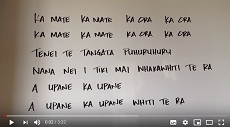 KA MATE KA MATE KA ORA KA ORA
KA MATE KA MATE KA ORA KA ORA
TENEI TE TANGATA PUHURUHURU
NANA NEI I TIKI MAI WHAKAWHITI TE RA
A UPANE KA UPANE
A UPANE KA UPANE WHITI TE RA
0:02 / 3:32